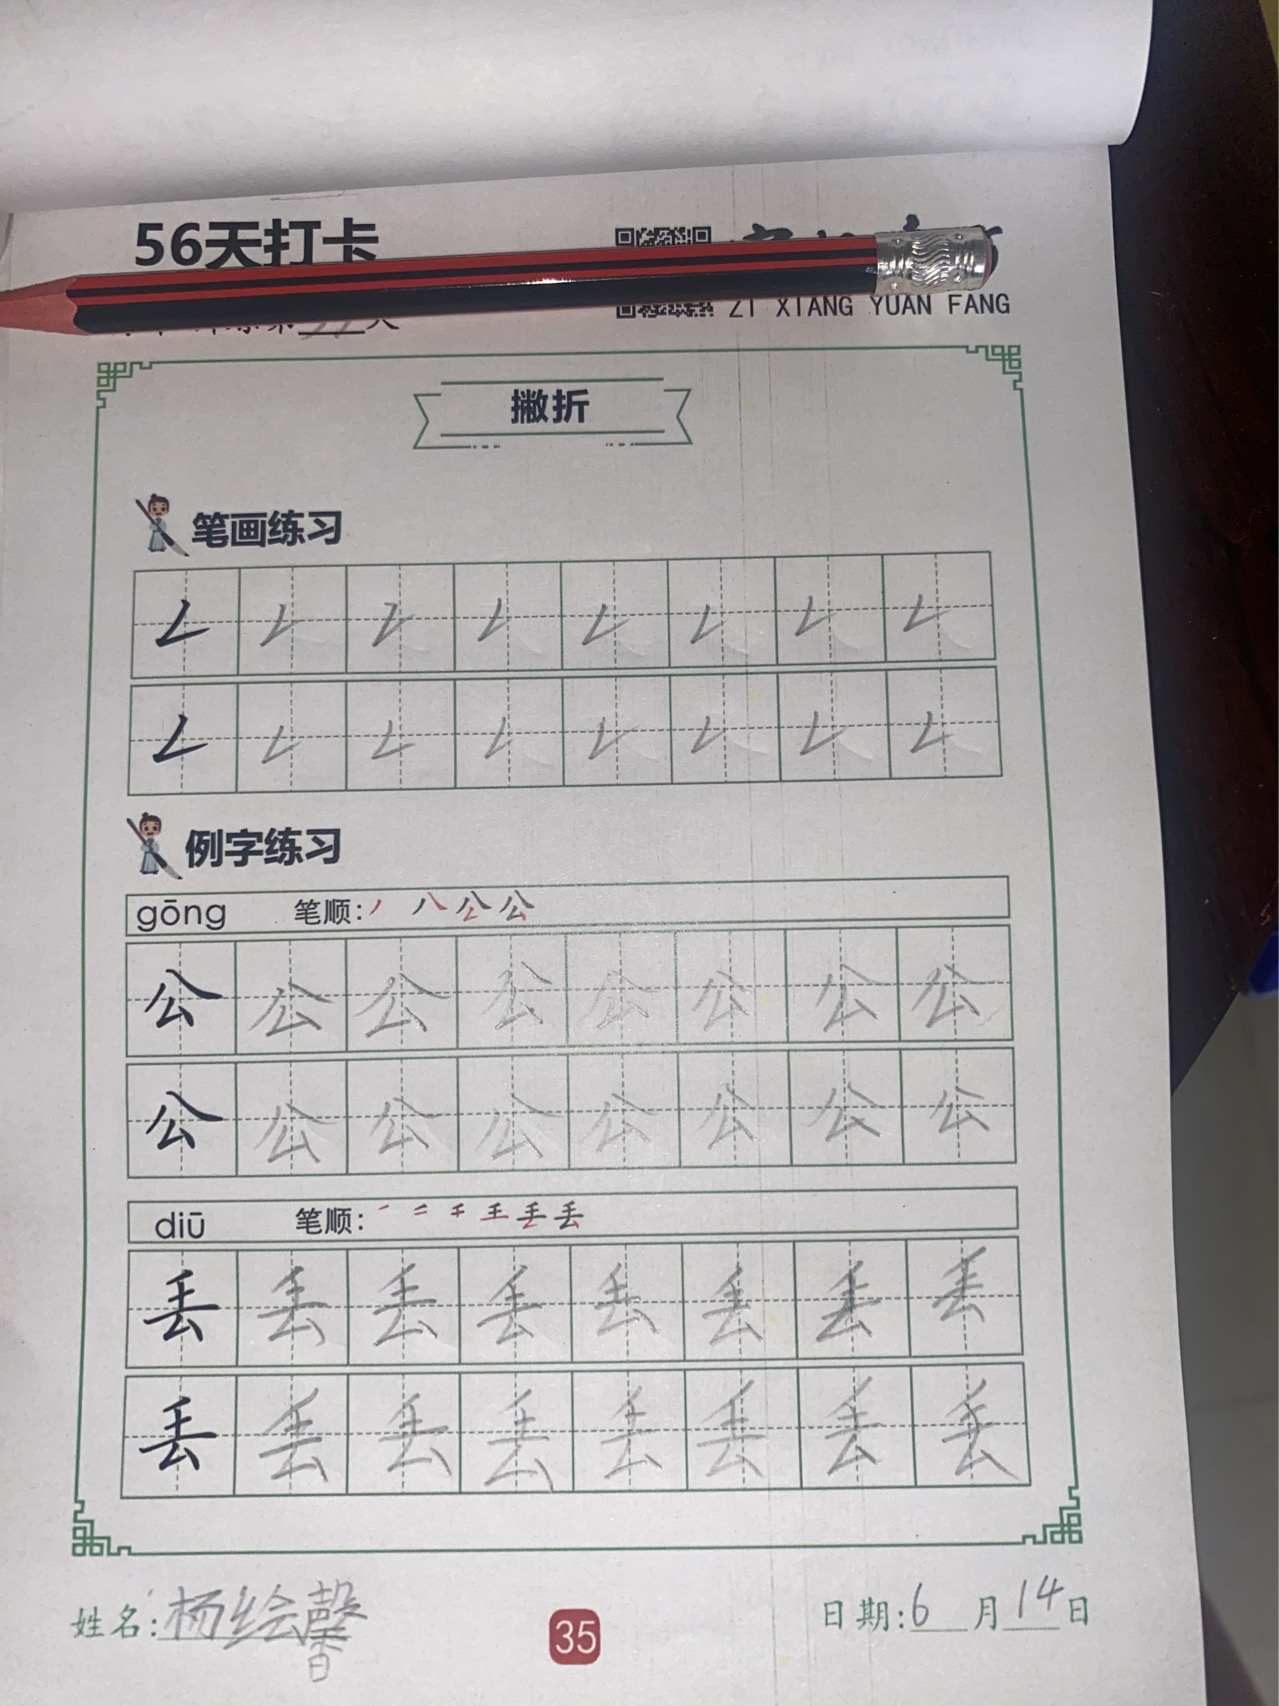 56天打卡
ZI XIANG YUAN FANG
撇折
笔画练习
例字练习
gōng 笔顺:
公 公 公 公 公 公 公 公
公 公 公 公 公 公 公 公
diū 笔顺:
丢 丢 丢 丢 丢 丢 丢 丢
丢 丢 丢 丢 丢 丢 丢 丢
姓名:杨绘馨 35 日期:6月14日